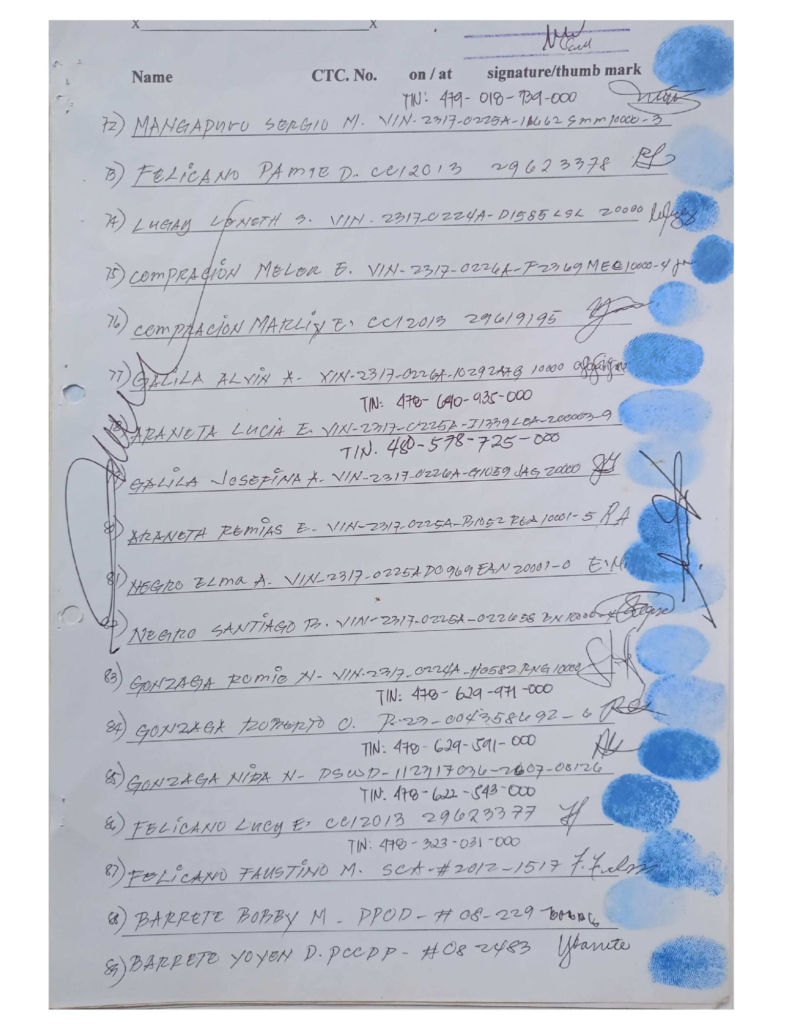 x x
Name CTC. No. on / at signature/thumb mark
TIN: 479-018-739-000
72) SERGIO M. VIN-2317-0225A-
73) FELICANO D. CC12013 29623378
74) LUGAY VIN-2317-0224A-D1585 LSL 20000
75) COMPRACION E. VIN-2317-0226A-F2369 MEC10000-4
76) COMPRACION E. CC12013 29619195
77) GALILA ALVIN A. VIN-2317-0226A-10292AAG 10000
TIN: 478-640-935-000
ARANETA LUCIA E. VIN-2317-0225A-I1339LEA-200003-9
TIN. 480-578-725-000
GALILA JOSEFINA A. VIN-2317-0226A-G1059 JAG 20000
ARANETA REMIAS E. VIN-2317-0225A-B1052 REA 10001-5 RA
81) NEGRO ELMA A. VIN-2317-0225A D0969 EAN 20001-0 E.N.
NEGRO SANTIAGO B. VIN-2317-0225A-
83) GONZAGA ROMIE N- VIN-2317-0224A-H0582 RNG 10000
TIN: 478-629-971-000
84) GONZAGA ROBERTO O. R-23-004358692-6
TIN: 478-629-591-000
85) GONZAGA NIDA N- DSWD-112317036-2607-08126
TIN. 478-622-543-000
86) FELICANO LUCY E. CC12013 29623377
TIN: 478-323-031-000
87) FELICANO FAUSTINO M. SCA-#2012-1517
88) BARRETE BOBBY M- DPOD-#08-229
89) BARRETE YOYEN D. PCCDP-#08 2483 Ybarrete